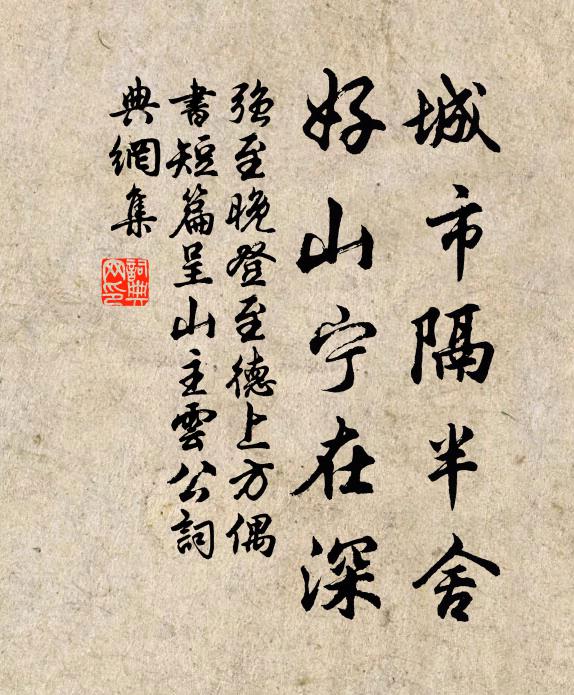 城市隔半舍
好山宁在深
强至晚登至德上方偶
書短篇呈山主雲公詞
典網集
詞典
网印